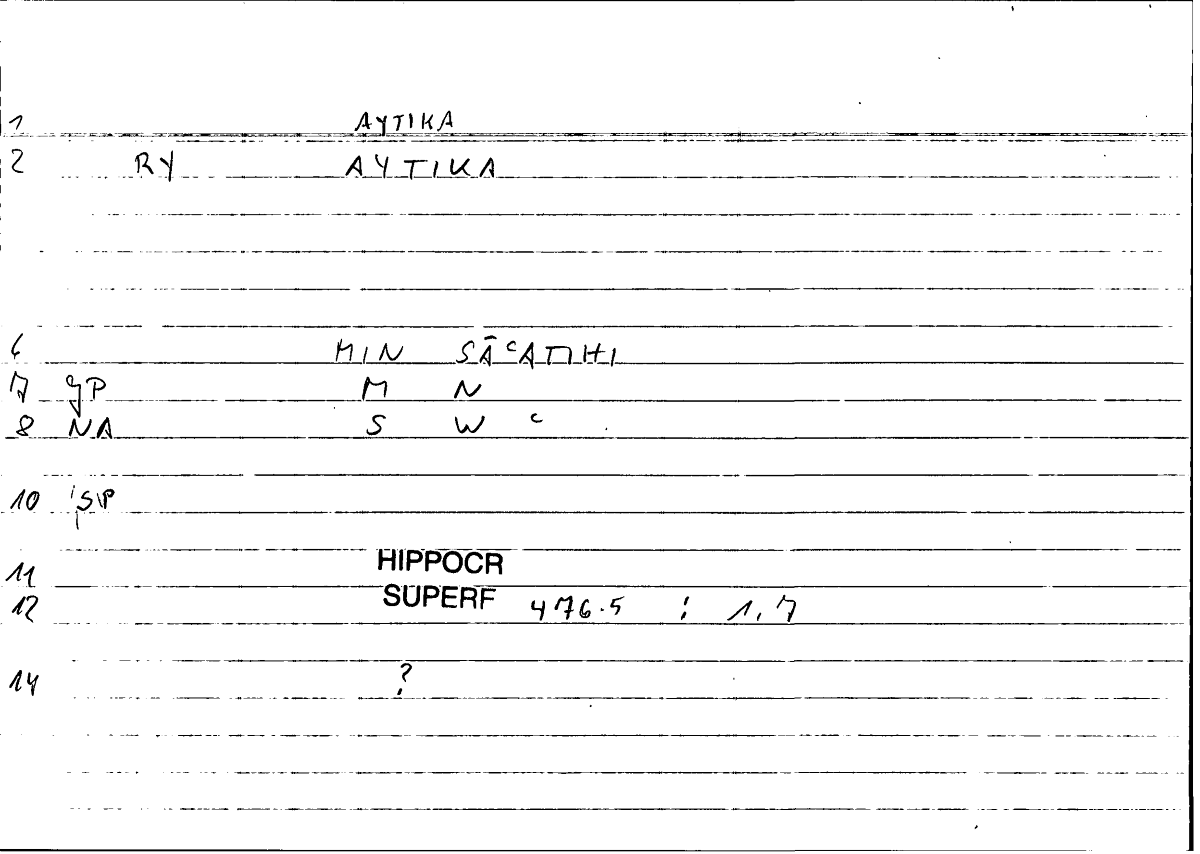 1 AYTIKA
2 RY AYTIKA
6 MIN SĀᶜATIHI
7 GP M N
8 NA S W ᶜ
10 SP
11 HIPPOCR
12 SUPERF 476.5 : 1,7
14 ?